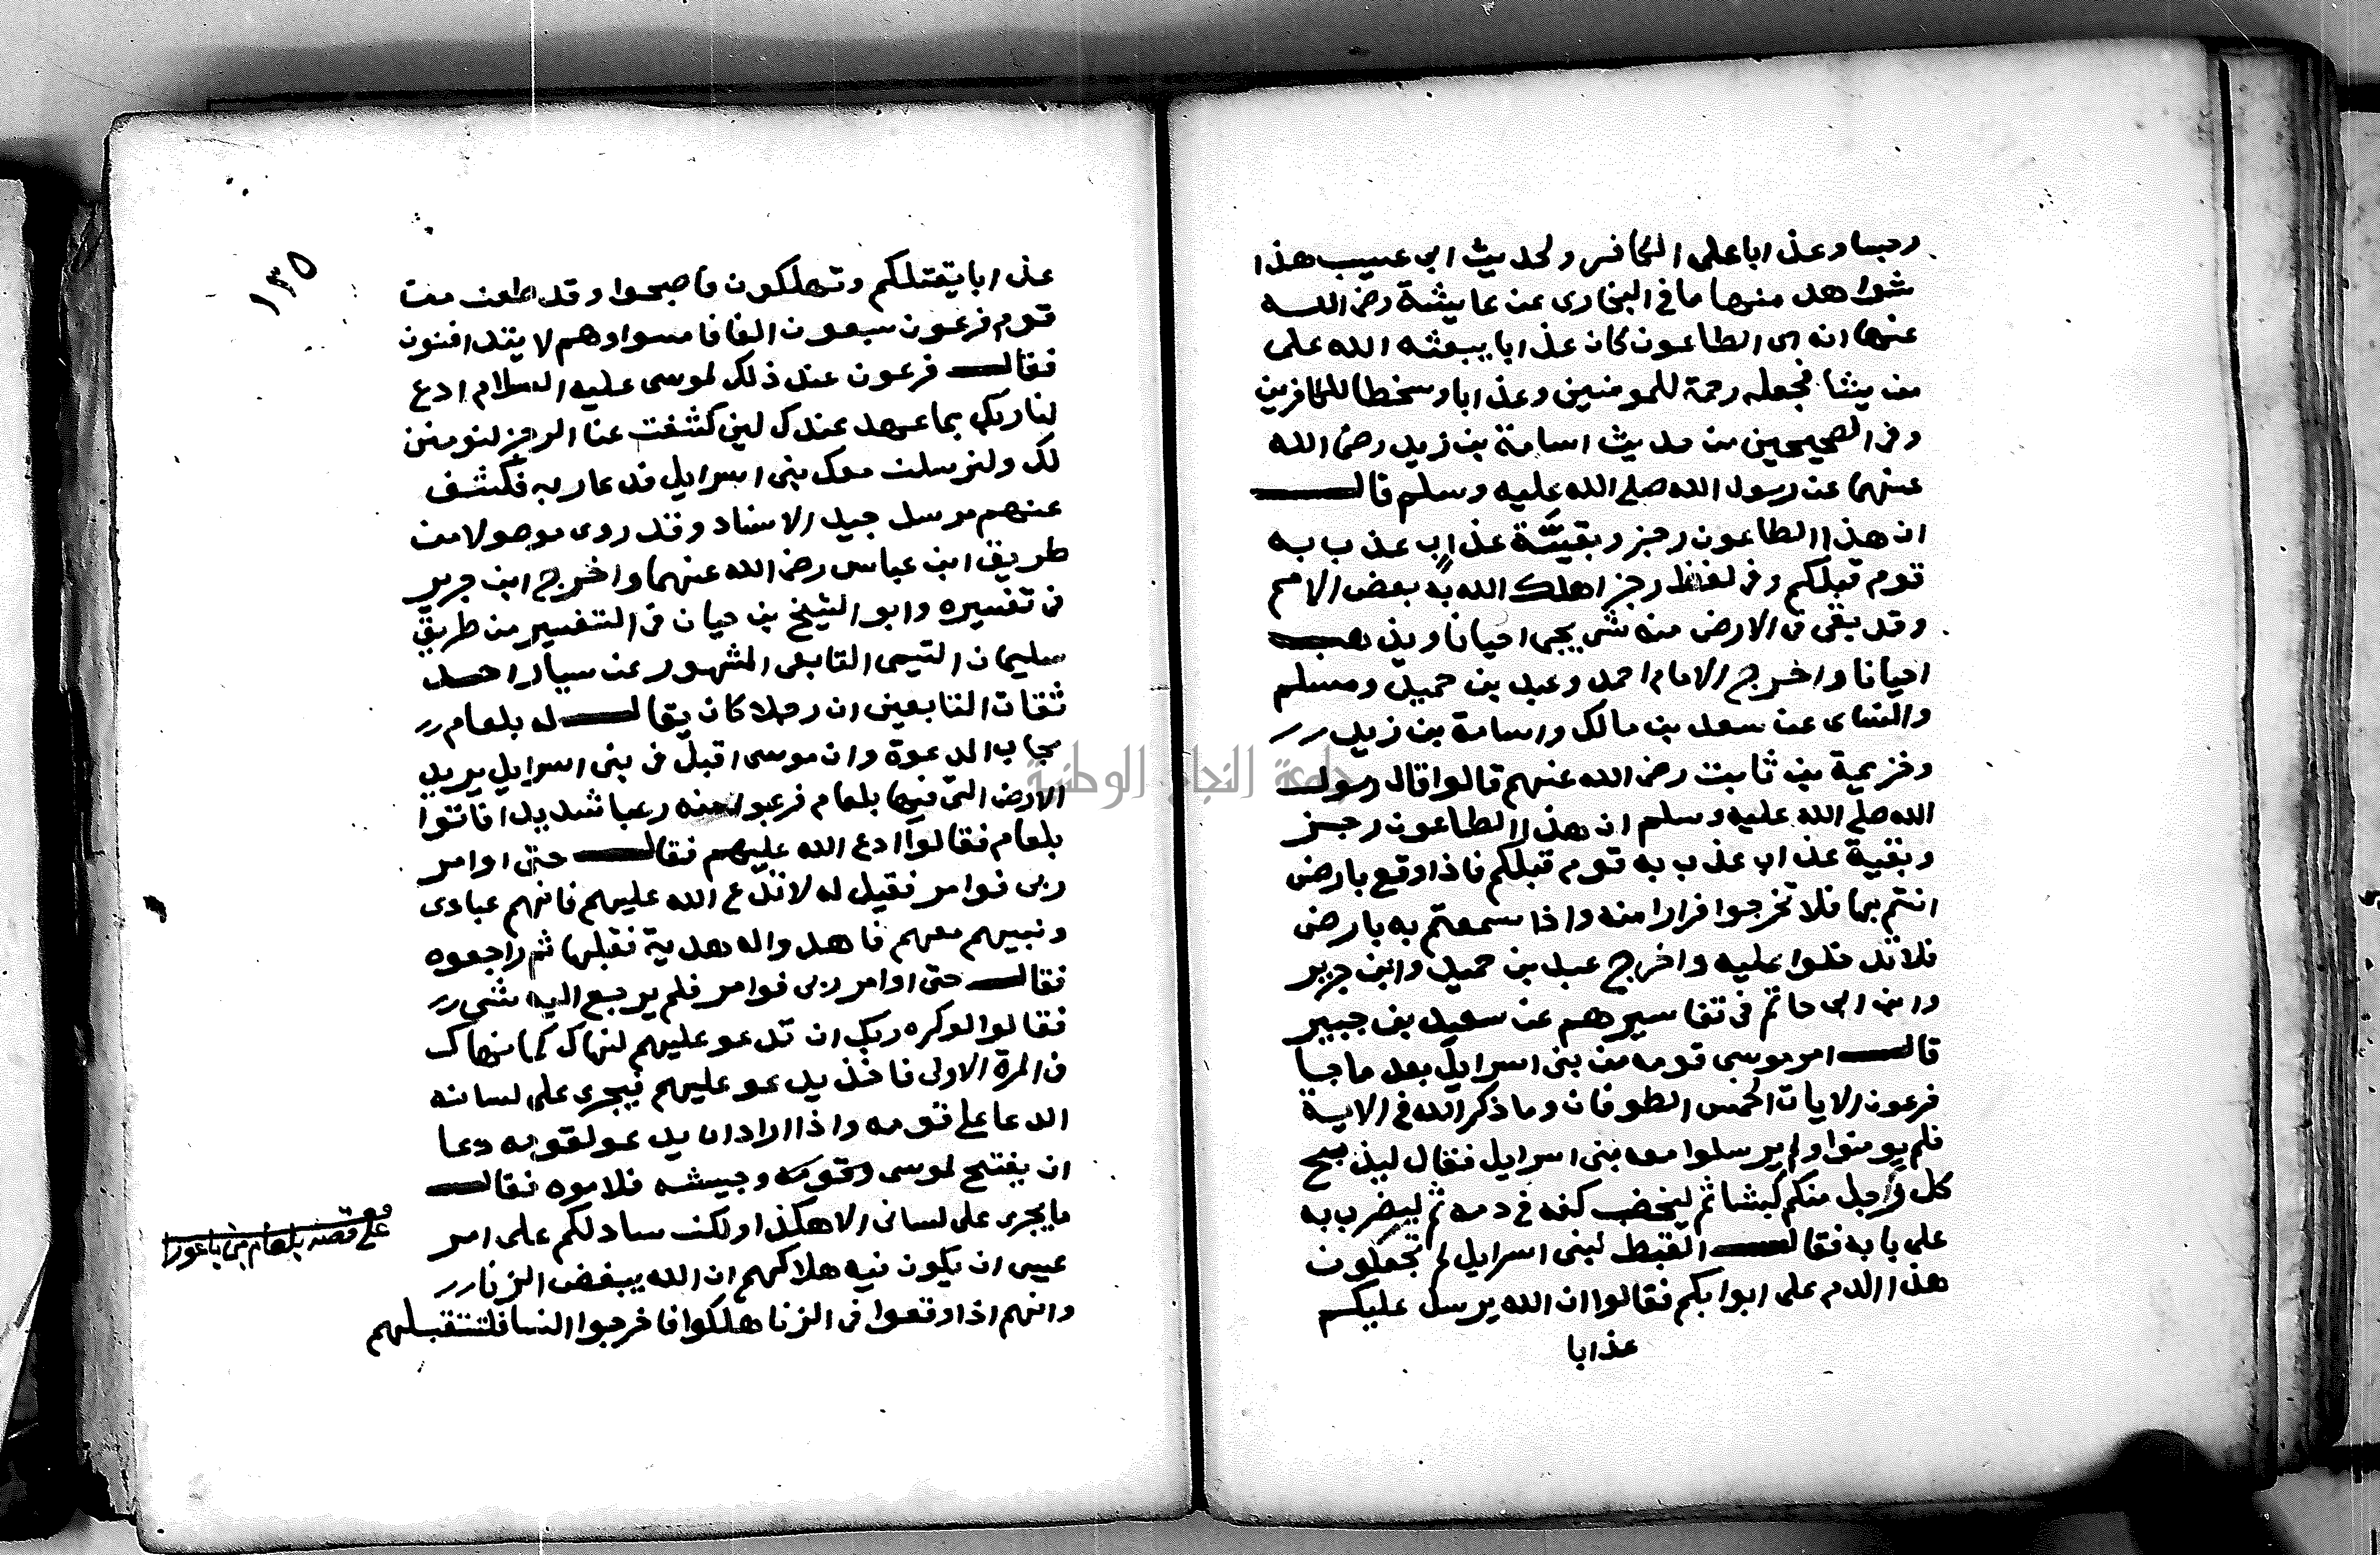 رجسا وعذابا على الكافر ولحديث ابي عسيب هذا
شواهد منها ما في البخارى عن عايشة رضى الله
عنها انه اى الطاعون كان عذابا يبعثه الله على
من يشا فجعله رحمة للمومنين وعذابا وسخطا للكافرين
وفى الصحيحين من حديث اسامة بن زيد رضى الله
عنهما عن رسول الله صلى الله عليه وسلم قال
ان هذا الطاعون رجز وبقية عذاب عذب به
قوم قبلكم وفى لفظ رجز اهلك الله به بعض الامم
وقد بقى فى الارض منه شى يجى احيانا ويذهب
احيانا واخرج الامام احمد وعبد بن حميد ومسلم
والنساى عن سعد بن مالك واسامة بن زيد
وخزيمة بن ثابت رضى الله عنهم قالوا قال رسول
الله صلى الله عليه وسلم ان هذا الطاعون رجز
وبقية عذاب عذب به قوم قبلكم فاذا وقع بارض
انتم بها فلا تخرجوا فرارا منه واذا سمعتم به بارض
فلا تدخلوا عليه واخرج عبد بن حميد وابن جرير
وابن ابى حاتم فى تفاسيرهم عن سعيد بن جبير
قال امر موسى قومه من بنى اسرايل بعد ما جا
فرعون الايات الخمس الطوفان وما ذكر الله فى الاية
فلم يومنوا ولم يرسلوا معه بنى اسرايل فقال ليذبح
كل واحد منكم كبشا ثم ليخضب كفه فى دمه ثم ليضرب به
على بابه فقال القبط لبنى اسرايل لم تجعلون
هذا الدم على ابوابكم فقالوا ان الله يرسل عليكم
عذابا
١٣٥
عذابا يقتلكم وتهلكون فاصبحوا وقد طعن من
قوم فرعون سبعون الفا فامسوا وهم لا يتدافنون
فقال فرعون عند ذلك لموسى عليه السلام ادع
لنا ربك بما عهد عندك لين كشفت عنا الرجز لنومنن
لك ولنرسلن معك بنى اسرايل فدعا ربه فكشف
عنهم مرسل جيد الاسناد وقد روى موصولا من
طريق ابن عباس رضى الله عنهما واخرج ابن جرير
فى تفسيره وابو الشيخ بن حيان فى التفسير من طريق
سليمان التيمى التابعى المشهور عن سيار احد
ثقات التابعين ان رجلا كان يقال له بلعام
مجاب الدعوة وان موسى اقبل فى بنى اسرايل يريد
الارض التى فيها بلعام فرعبوا منه رعبا شديدا فاتوا
بلعام فقالوا ادع الله عليهم فقال حتى اوامر
ربى فوامر فقيل له لا تدع الله عليهم فانهم عبادى
ونبيهم معهم فاهدوا له هدية فقبلها ثم راجعوه
فقال حتى اوامر ربى فوامر فلم يرجع اليه شى
فقالوا لو كره ربك ان تدعو عليهم لنهاك كما نهاك
فى المرة الاولى فاخذ يدعو عليهم فيجرى على لسانه
الدعا على قومه واذا اراد ان يدعو لقومه دعا
ان يفتح لموسى وقومه وجيشه فلاموه فقال
ما يجرى على لسانى الا هكذا ولكن سادلكم على امر
عسى ان يكون فيه هلاكهم ان الله يبغض الزنا
وانهم اذا وقعوا فى الزنا هلكوا فاخرجوا النسا فلتستقبلهم
على قصة بلعام بن باعورا
جامعة النجاح الوطنية